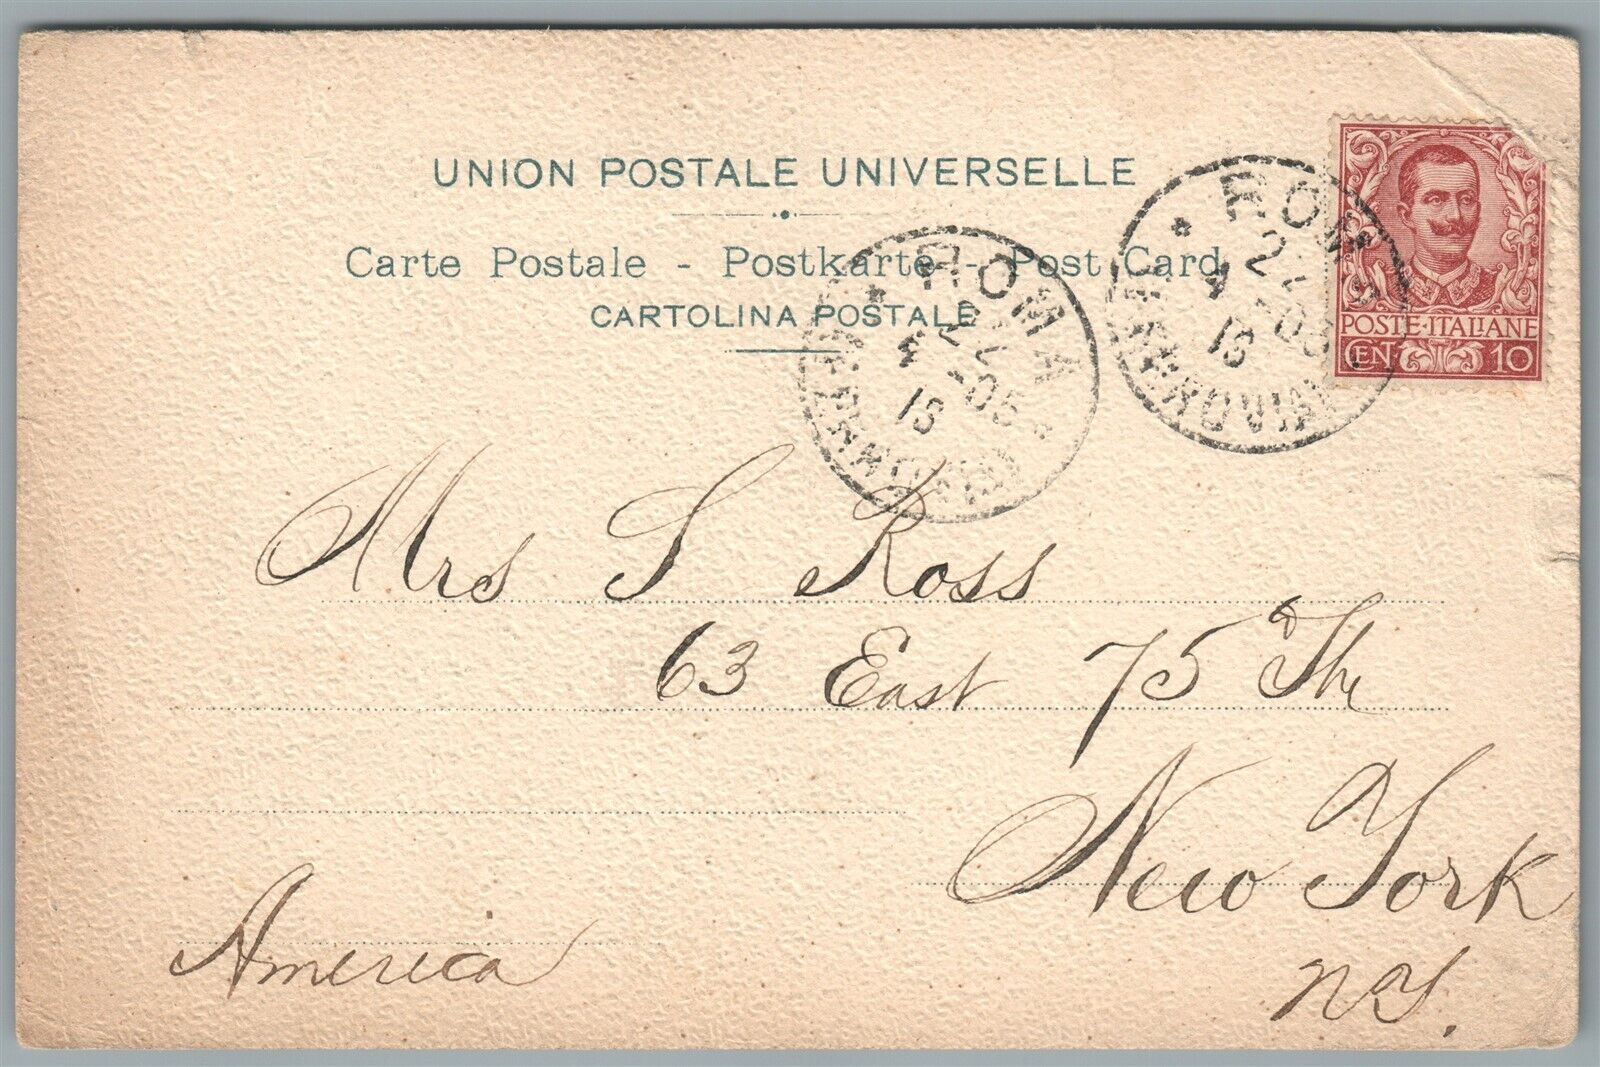 UNION POSTALE UNIVERSELLE
Carte Postale - Postkarte - Post Card
CARTOLINA POSTALE
ROMA
22
4 -05
18
ROMA
4 -05
18
POSTE·ITALIANE
CEN 10
Mrs S Ross
63 East 75 The
New York
N Y.
America